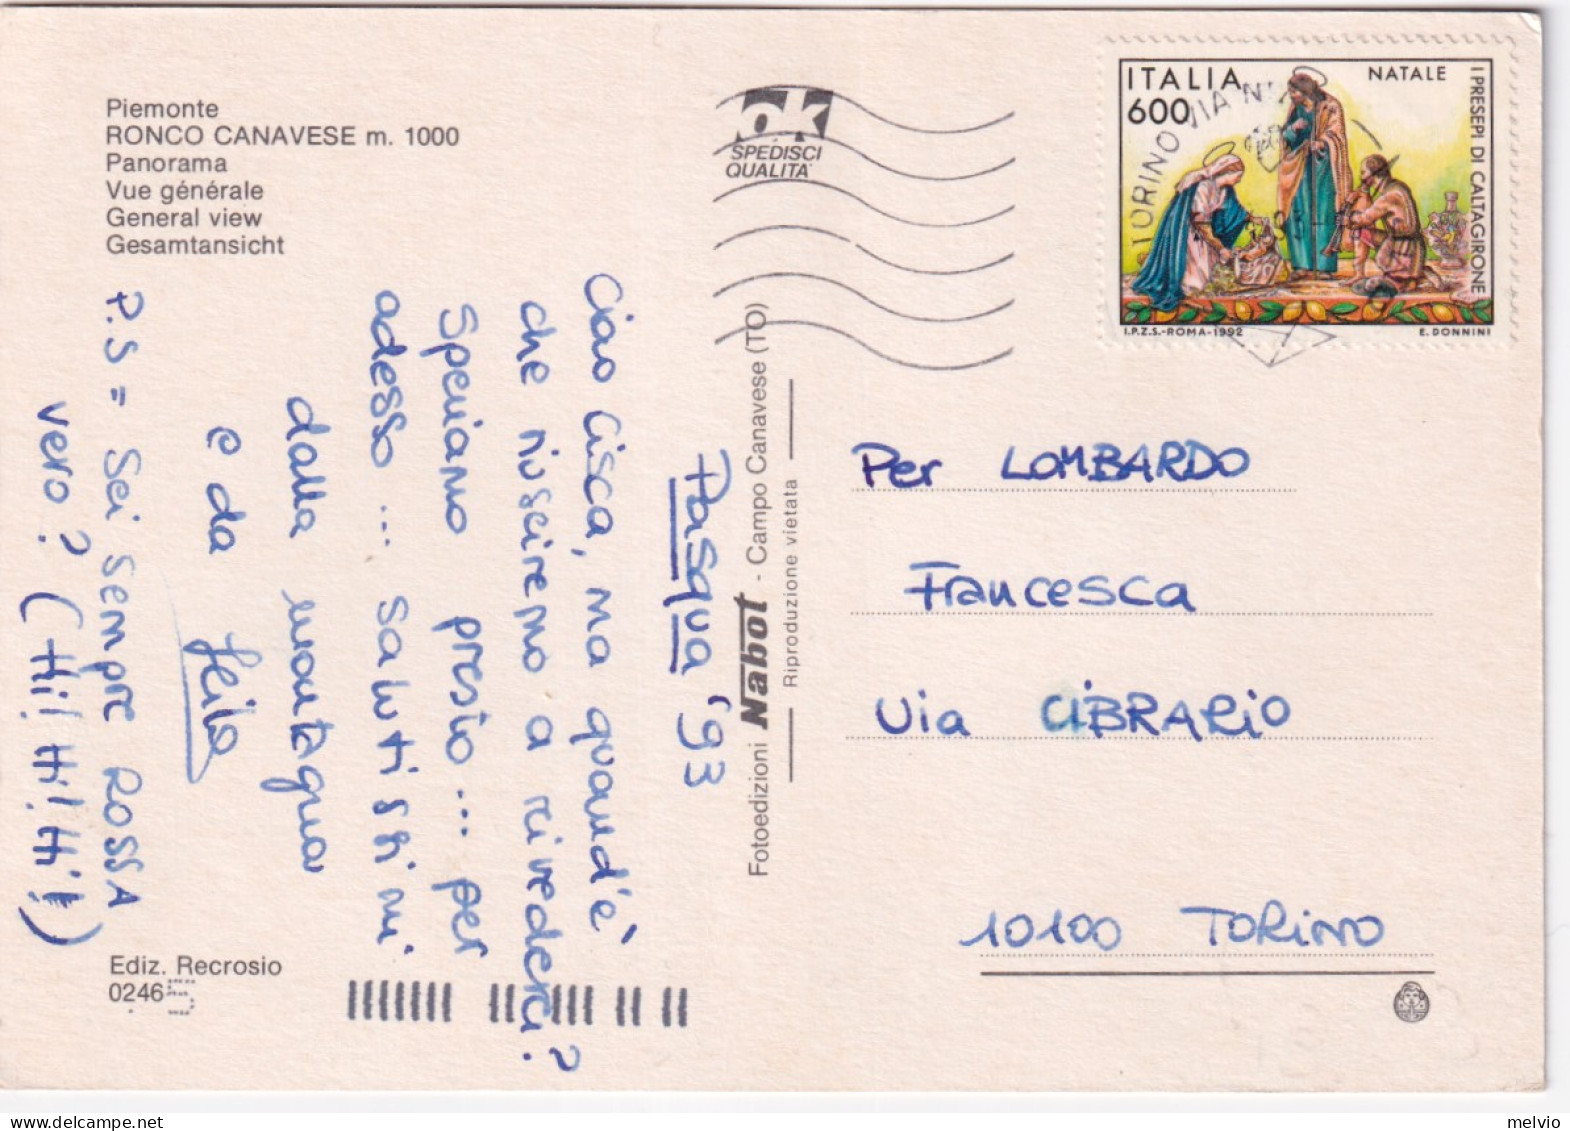 Piemonte
RONCO CANAVESE m. 1000
Panorama
Vue générale
General view
Gesamtansicht
Pasqua '93
Ciao Cisca, ma quand'è
che riusciremo a rivederci?
Speriamo presto... per
adesso... salutissimi
dalla montagna
e da
P.S = Sei sempre ROSSA
vero? (Hi! Hi! Hi!)
Ediz. Recrosio
0246 5
Fotoedizioni Nabot - Campo Canavese (TO)
Riproduzione vietata
ok
SPEDISCI
QUALITA'
TORINO VIA NI
ITALIA
600
NATALE
I PRESEPI DI CALTAGIRONE
I.P.Z.S.-ROMA-1992
E. DONNINI
Per LOMBARDO
Francesca
Via CIBRARIO
10100 TORINO
melvio